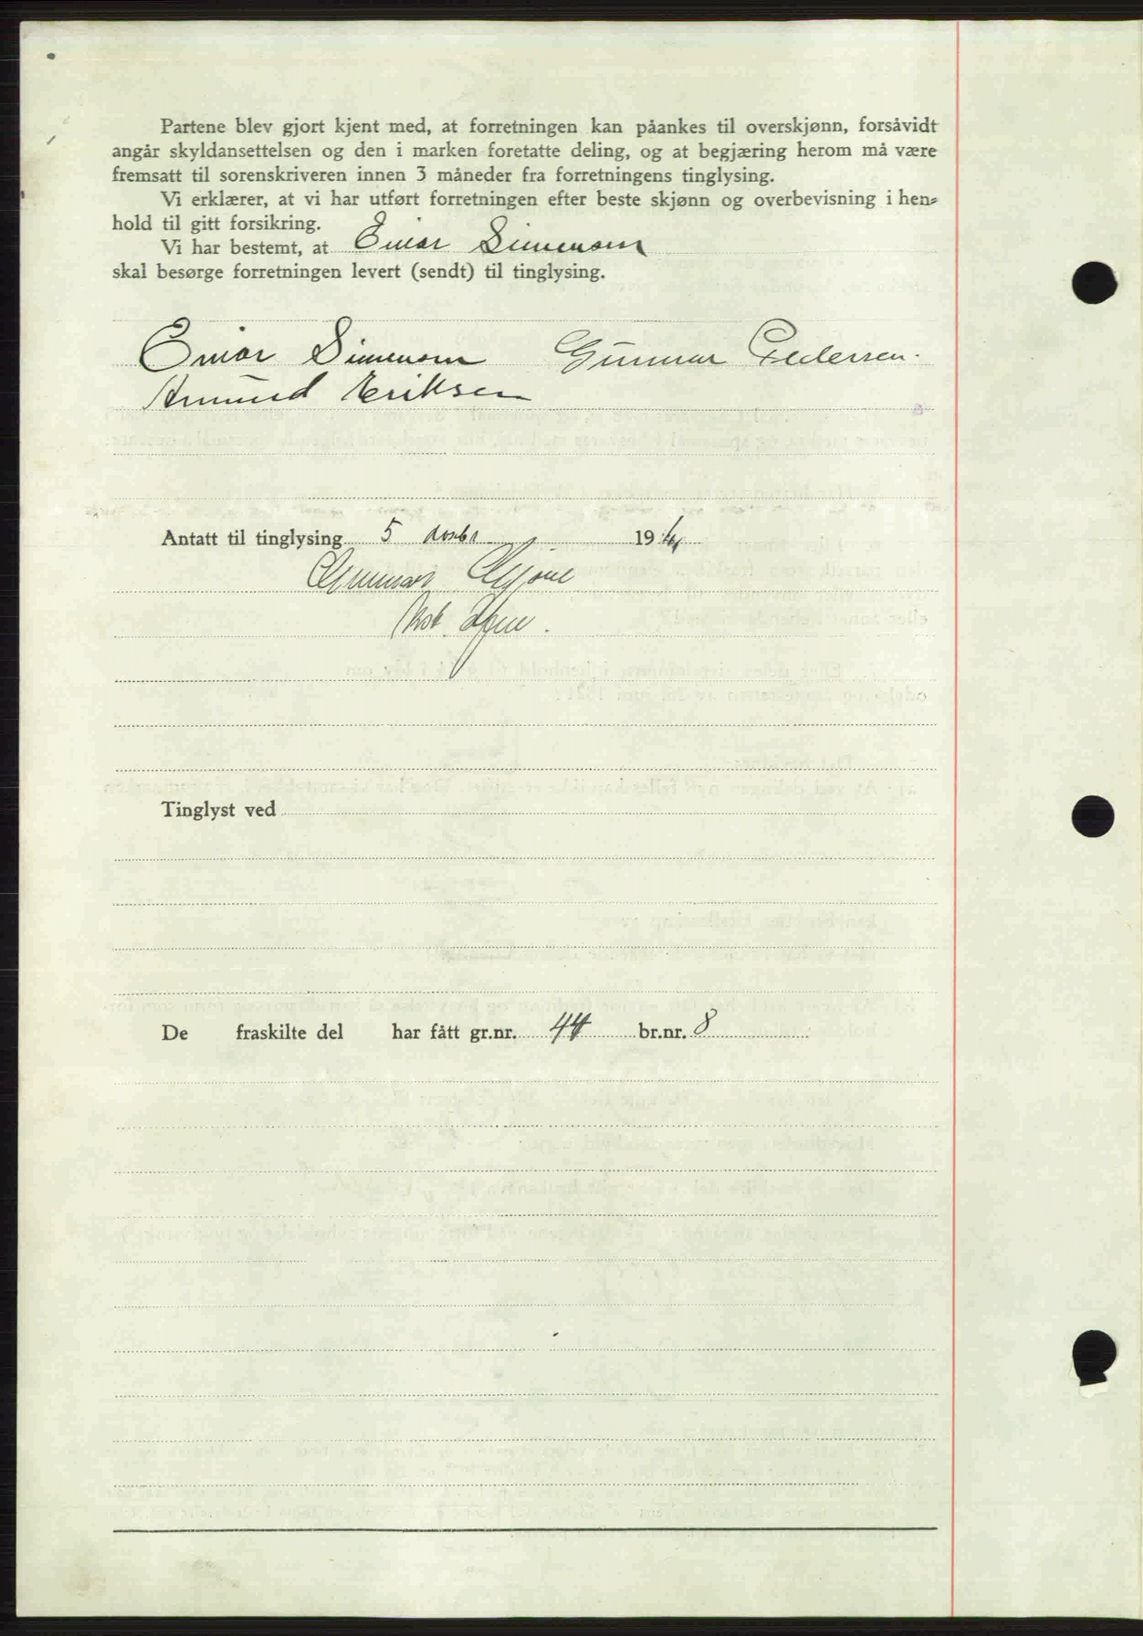 Partene blev gjort kjent med, at forretningen kan påankes til overskjønn, forsåvidt
angår skyldansettelsen og den i marken foretatte deling, og at begjæring herom må være
fremsatt til sorenskriveren innen 3 måneder fra forretningens tinglysing.
Vi erklærer, at vi har utført forretningen efter beste skjønn og overbevisning i hen-
hold til gitt forsikring.
Vi har bestemt, at Einar Simensen
skal besørge forretningen levert (sendt) til tinglysing.
Einar Simensen Gunnar Pedersen.
Amund Eriksen
Antatt til tinglysing 5 19
Gunnar
Tinglyst ved
De fraskilte del har fått gr.nr. 44 br.nr. 8